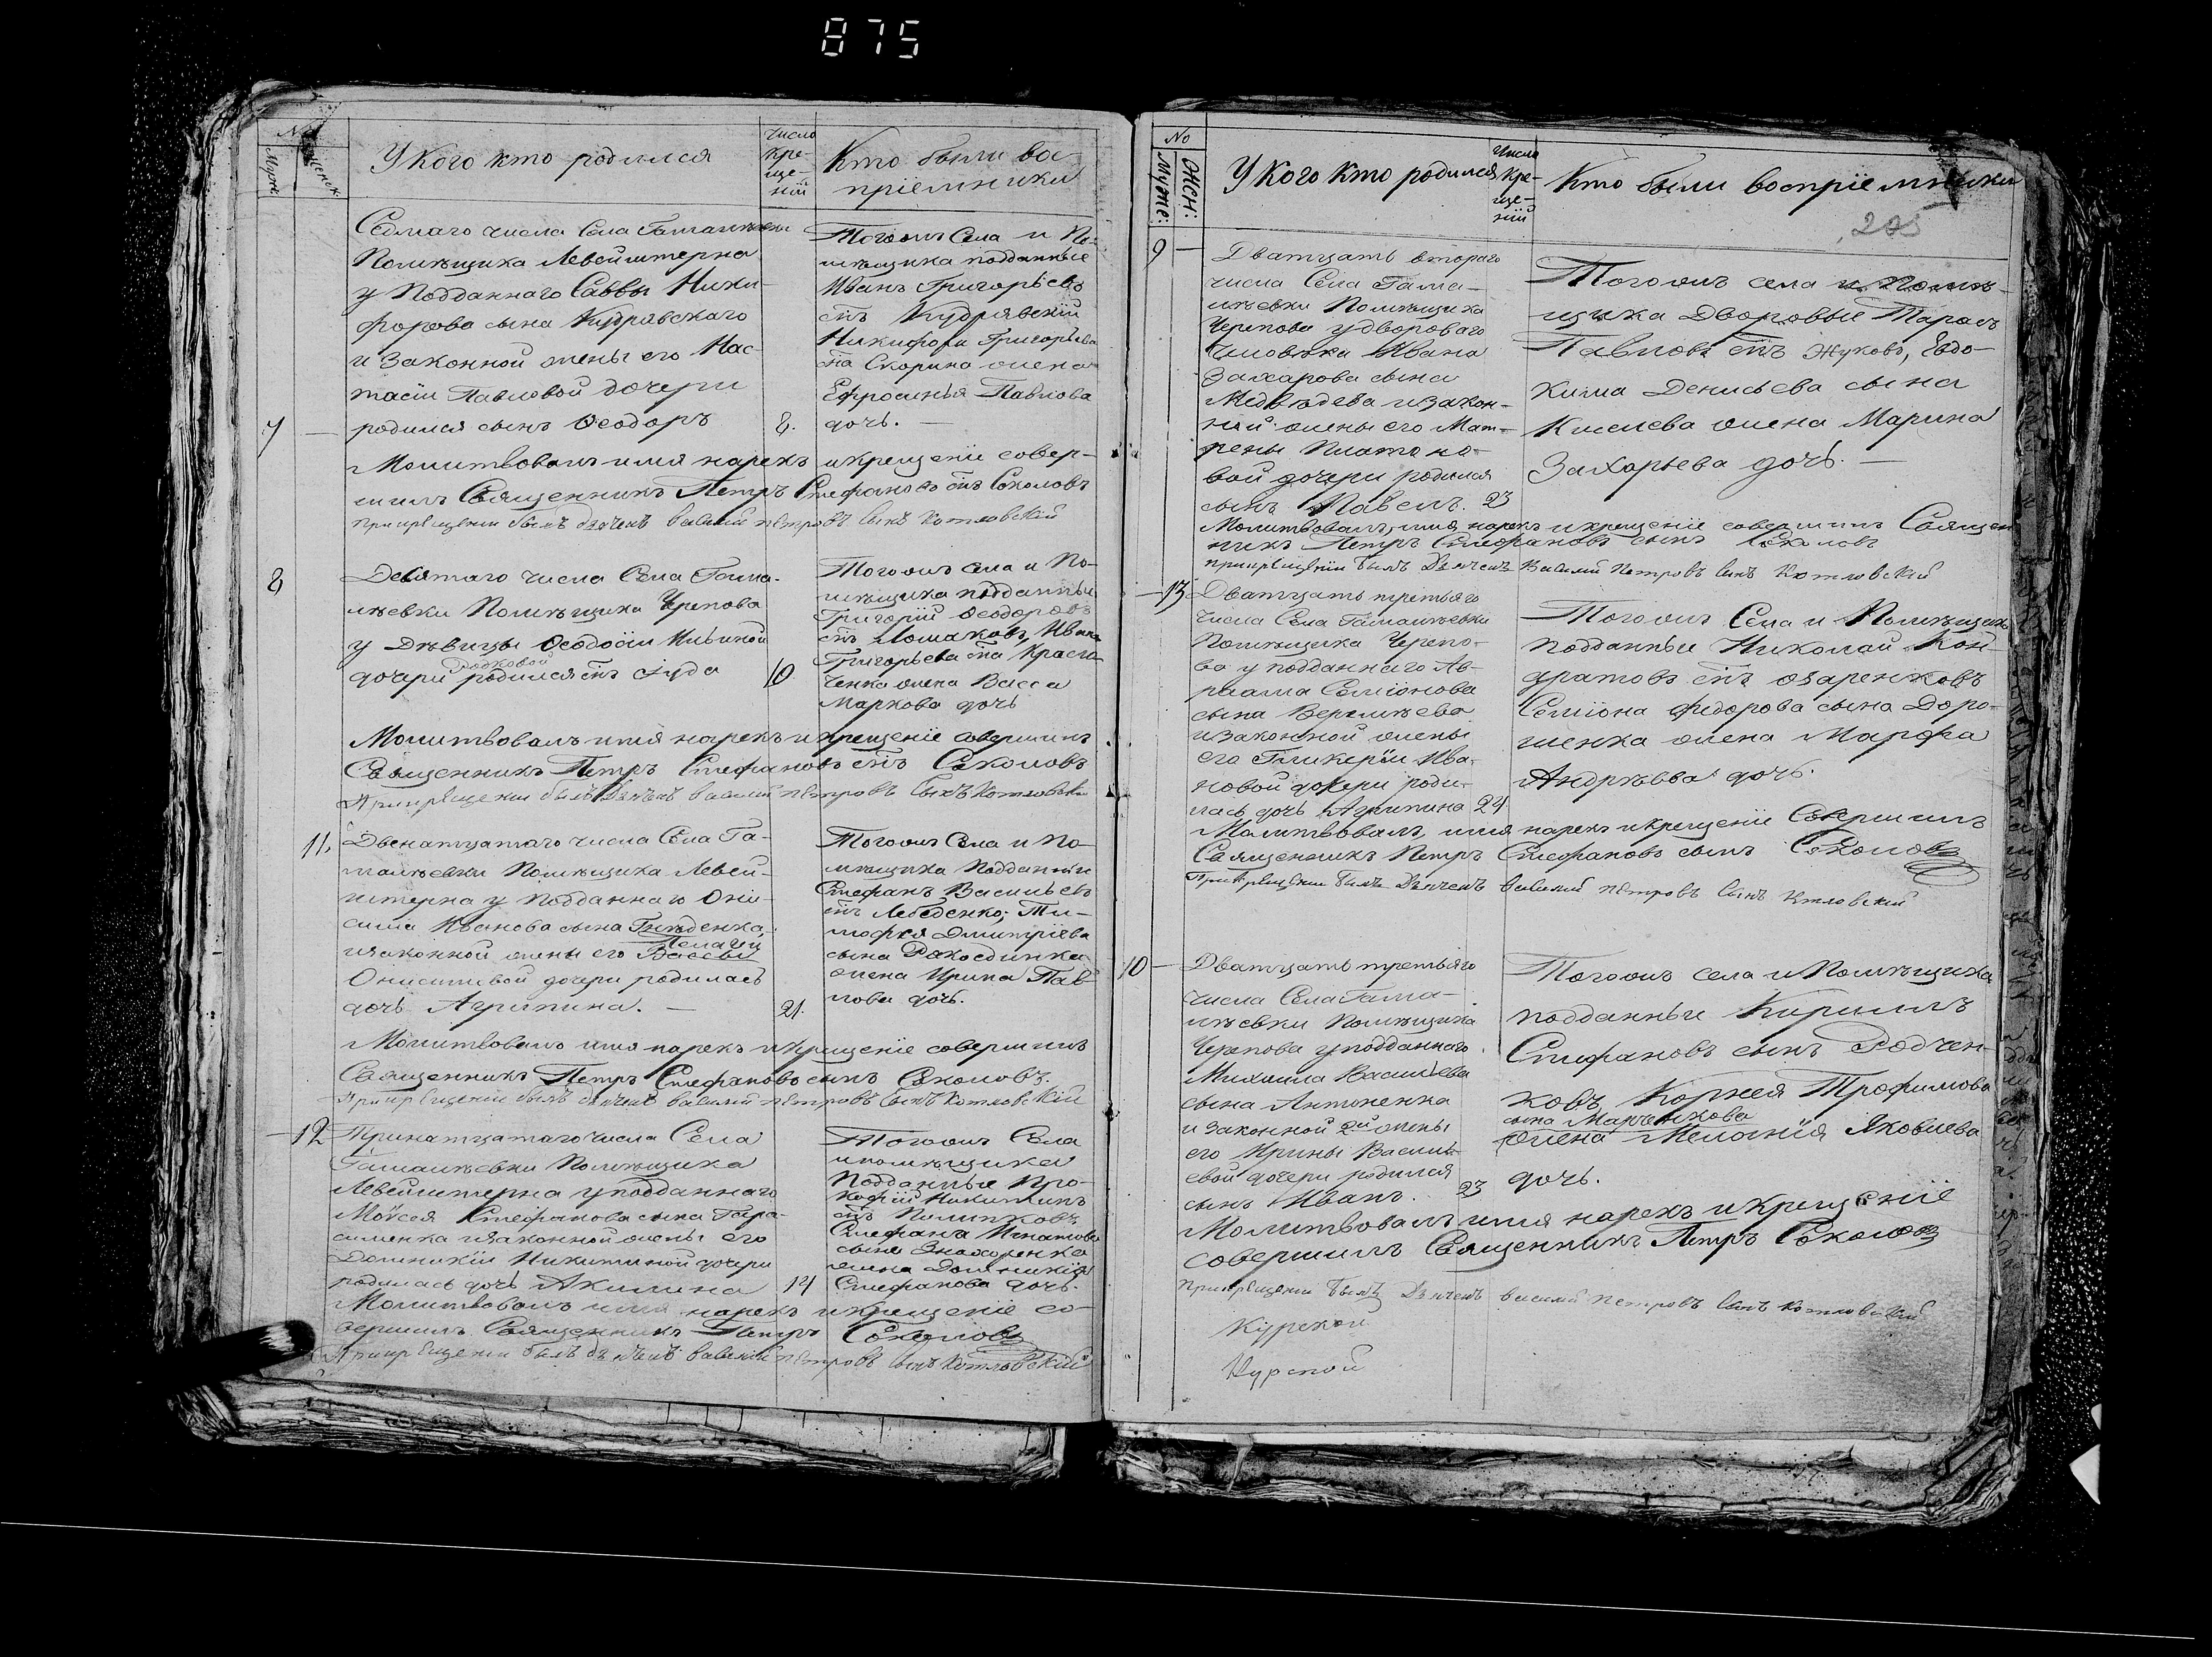 875
No
Муж:
Женск:
У Кого кто родился
Число
кре-
ще-
нiй
Кто были вос-
прiемники
Седмаго числа Села Гамалѣевки
Помѣщика Левенштерна
у Подданнаго Саввы Ники-
форова сына Кудравскаго
и Законной жены его Нас-
тасiи Павловой дочери
7 — родился сынъ Ѳеодоръ 8.
Тогожъ Села и По-
мѣщика подданные
Иванъ Григорьевъ
снъ Кудрявскiй
Никифора Григорьева
сна Скорика жена
Ефросинья Павлова
дочь. —
Молитвовалъ имя нарекъ и крещенiе совер-
шилъ Священникъ Петръ Стефановъ снъ Соколовъ
При крещенiи былъ дьячекъ Василiй Петровъ сынъ Котловскiй
8
Девятаго числа Села Гама-
лѣевки Помѣщика Черепова
у Дѣвицы Ѳеодосiи Ильиной
дочери родился снъ Iуда 10
Тогожъ села и По-
мѣщика подданные
Григорiй Ѳеодоровъ
снъ Ломаковъ, Ивана
Григорьева сна Красно-
ченка жена Васса
Маркова дочь
Молитвовалъ имя нарекъ и крещенiе совершилъ
Священникъ Петръ Стефановъ снъ Соколовъ
При крещенiи былъ Дьячекъ Василiй Петровъ Сынъ Котловскiй
11.
Двенатцатаго числа Села Га-
малѣевки Помѣщика Левен-
штерна у подданнаго Они-
сима Иванова сына Гнѣденка,
и законной жены его Вассы
Онисимовой дочери родилась
дочь Агрипина. — 21.
Тогожъ Села и По-
мѣщика Подданные
Стефанъ Васильевъ
снъ Лебеденко, Ти-
мофея Дмитрiева
сына Ракоединка
жена Ирина Пав-
лова дочь.
Молитвовалъ имя нарекъ и крещенiе совершилъ
Священникъ Петръ Стефановъ сынъ Соколовъ.
При крещенiи былъ дьячекъ Василiй Петровъ Сынъ Котловскiй
— 12
Тринатцатаго числа Села
Гамалѣевки Помѣщика
Левенштерна у подданнаго
Моѵсея Стефанова сына Гера-
сименка и законной жены его
Домникiи Никитиной дочери
родилась дочь Акилина 14
Тогожъ Села
и помѣщика
Подданные Про-
кофiй Никитинъ
снъ
Стефана Игнатова
сына Знахоренка
жена Домникiя
Стефанова дочь.
Молитвовалъ имя нарекъ и крещенiе со-
вершилъ Священникъ Петръ Соколовъ
При крещенiи былъ дьячекъ Василiй Петровъ сынъ Котловскiй
No
Муже:
Жен:
У Кого кто родился
Число
кре-
ще-
нiй
Кто были воспрiемники
205
9 —
Дватцать втораго
числа Села Гама-
лѣевки Помѣщика
Черепова у двороваго
человѣка Ивана
Захарова сына
Медвѣдева и закон-
ной жены его Мат-
рены Плато но-
вой дочери родился
сынъ Павелъ. 23
Тогожъ села и Помѣ-
щика Дворовые Тарасъ
Павловъ снъ Жуковъ, Евдо-
кима Денисьева сына
Киселева жена Марина
Захарьева дочь. —
Молитвовалъ, имя нарекъ и крещенiе совершилъ Священ
никъ Петръ Стефановъ сынъ Соколовъ
При крещенiи былъ Дьячекъ Василiй Петровъ Сынъ Котловскiй
— 13
Дватцать третьяго
числа Села Гамалѣевки
Помѣщика Черепо-
ва у подданнаго Ав-
раама Семiонова
сына
и законной жены
его Гликерiи Ива-
новой дочери роди-
лась дочь Агрипина 24
Тогожъ Села и Помѣщика
подданные Николай Кон-
дратовъ снъ
Семiона Федорова сына Доро-
шенка жена Марфа
Андрѣева дочь.
Молитвовалъ, имя нарекъ и крещенiе Совершилъ
Священникъ Петръ Стефановъ сынъ Соколовъ
При крещенiи былъ Дьячекъ Василiй Петровъ Сынъ Котловскiй
10 —
Дватцать третьяго
числа Села Гама-
лѣевки Помѣщика
Черепова у подданнаго
Михаила Васильева
сына Антоненка
и законной 2й жены
его Ирины Василь-
евой дочери родился
сынъ Иванъ. 23
Тогожъ села и Помѣщика
подданные Кирилъ
Стефановъ сынъ Родчен-
ковъ, Корнея Трофимова
сына Марченкова
жена Меланiя Яковлева
дочь.
Молитвовалъ имя нарекъ и крещенiе
совершилъ Священникъ Петръ Соколовъ
При крещенiи былъ Дьячекъ Василiй Петровъ Сынъ Котловскiй
Курской
Курской